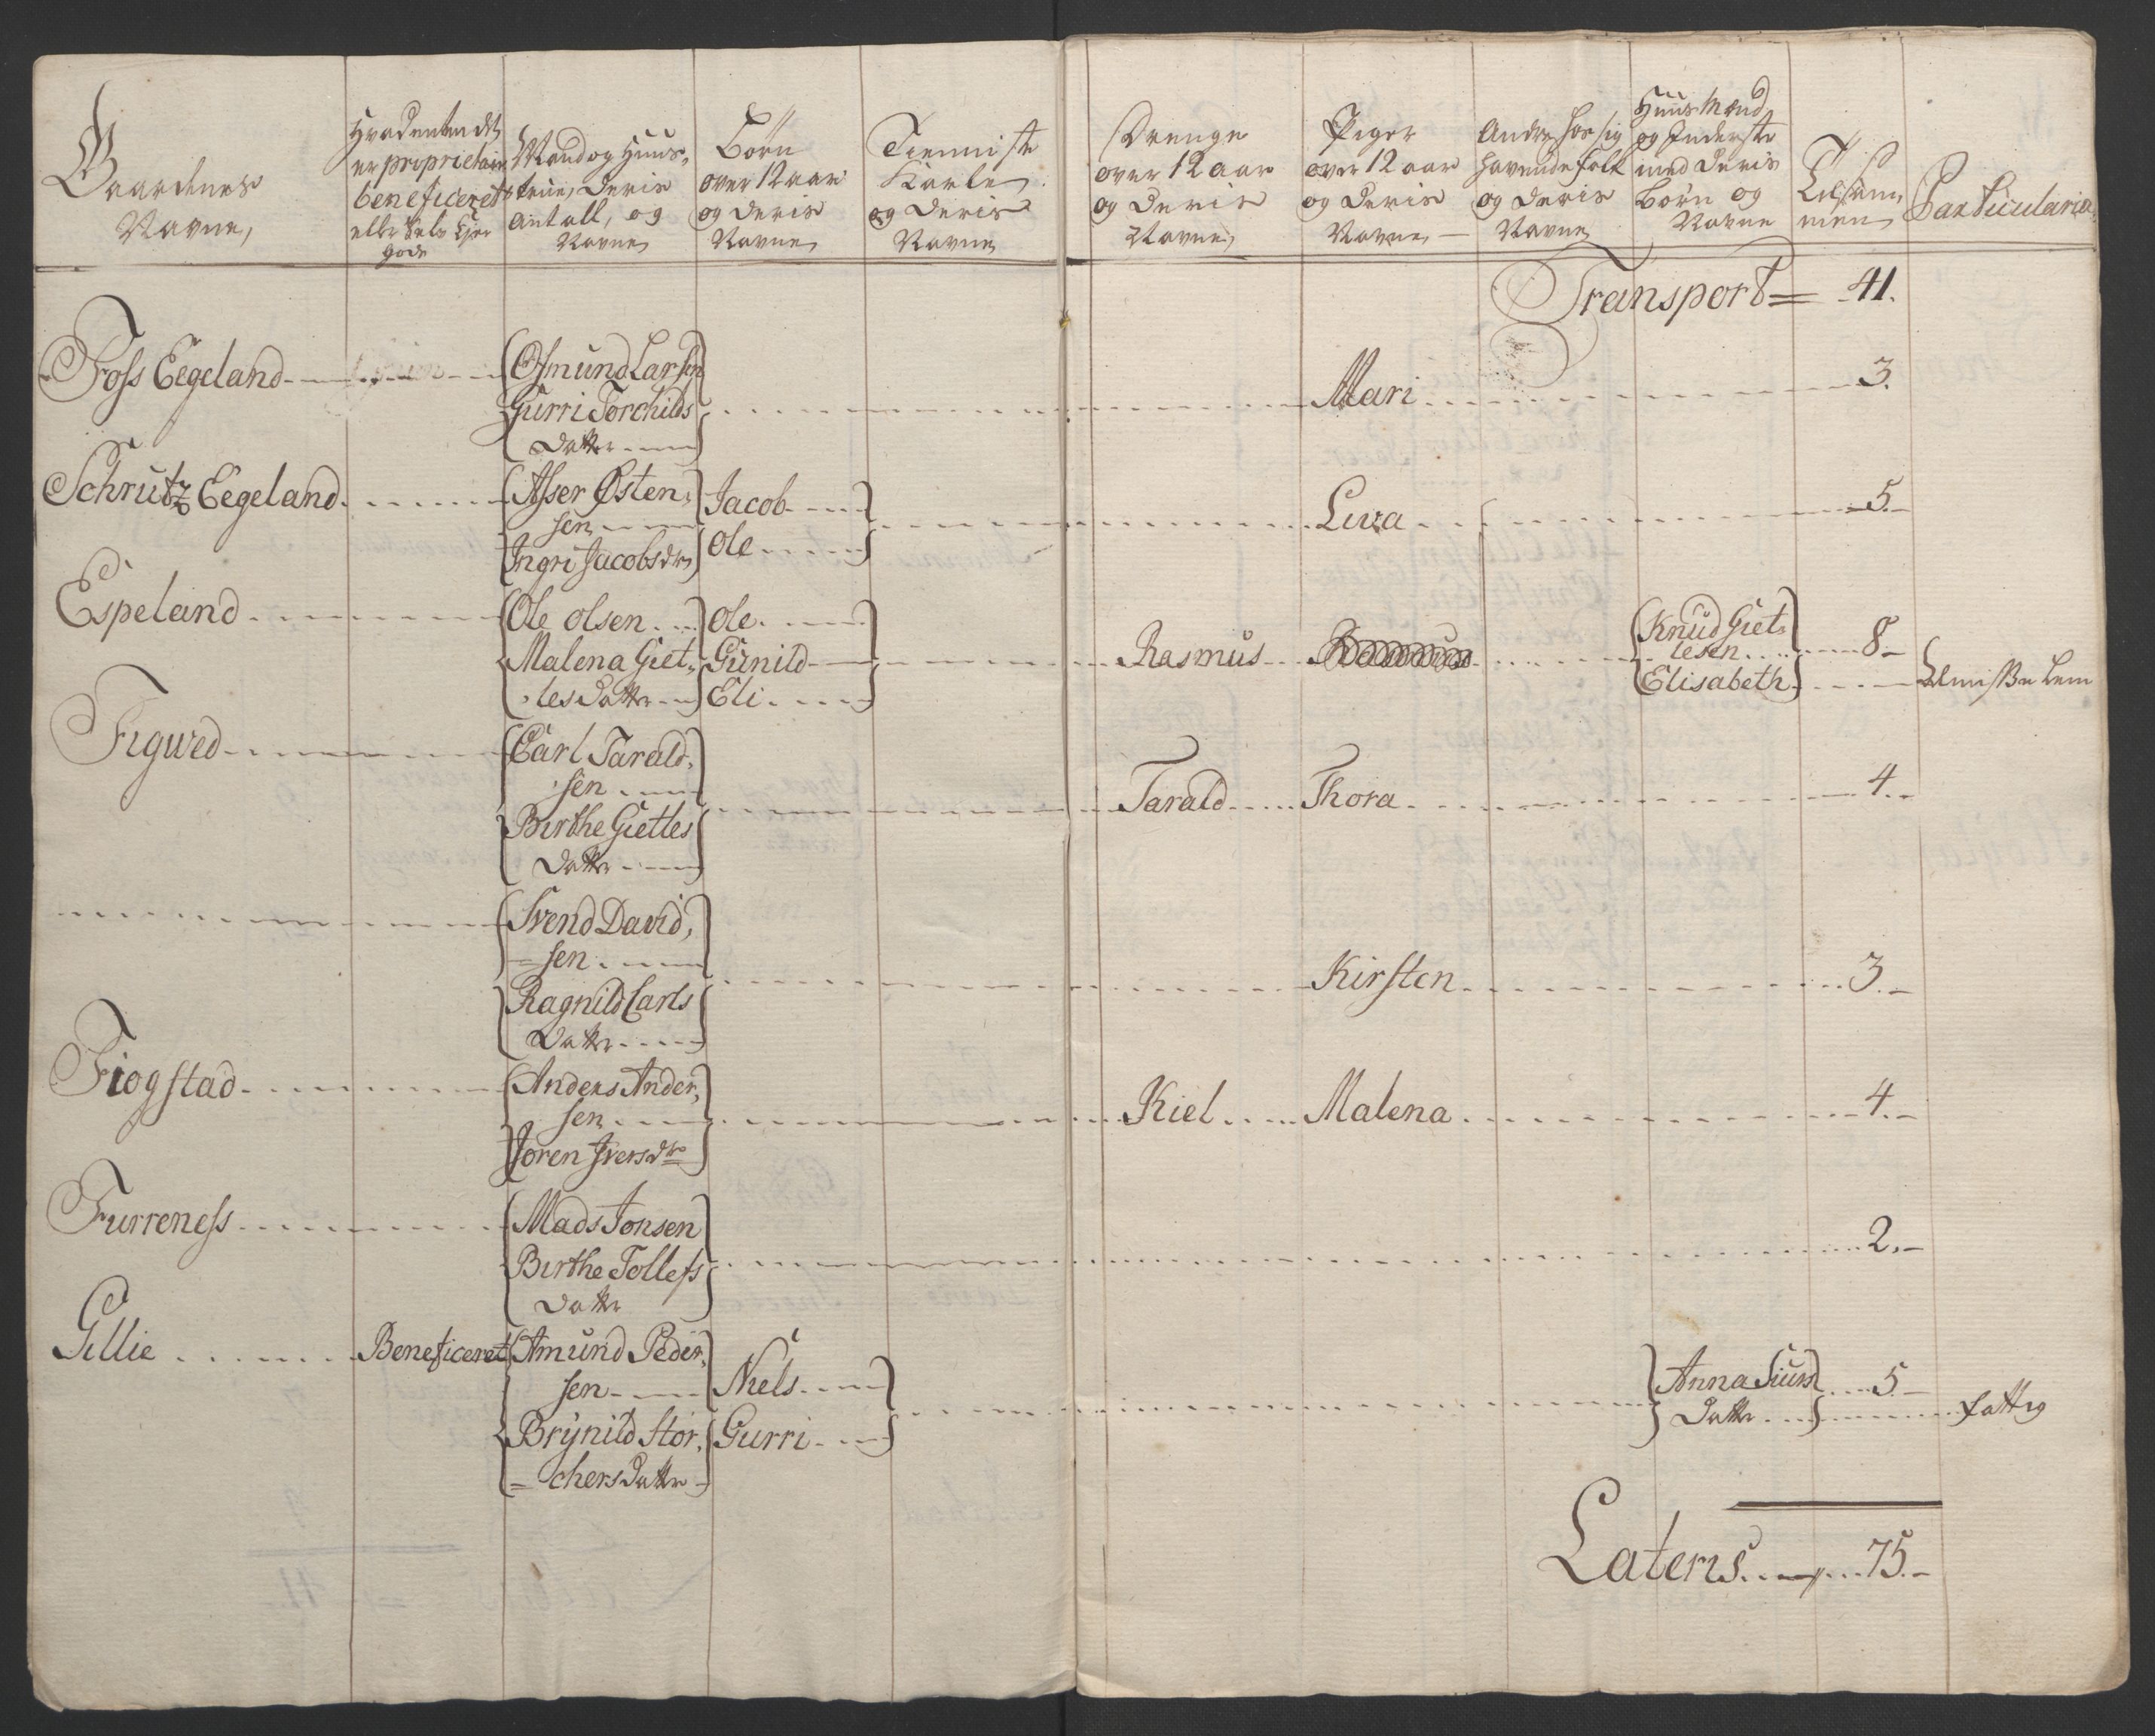 Gaardenes Navne,
Hvad enten det er proprietair beneficeret eller Selv Ejer gods
Mand og Huus- true, deris Antall, og Navne
Børn over 12 aar og deris Navne
Tienniste Karle og deris Navne
Drenge over 12 aar og deris Navne
Piger over 12 aar og deris Navne
Andre hos sig havende folk og deris Navne
Huus Mænd og Inderste med deris Børn og Navne
Tilsam, men
Particularia
Transport = 41.
Foss Eegeland
Osmund Larsen
Gurri Torchilds
Datter
Mari 3.
Schrutz Eegeland
Asser Østen,
sen
Ingri Jacobsdr
Jacob
Ole
Liva 5.
Espeland
Ole Olsen
Malena Giet,,
les Datter
Ole
Gunild
Eli
Rasmus
Knud Giet,
lesen
Elisabeth
8
Figved
Carl Tarald,
sen
Birthe Gietles
Datter
Tarald Thora 4.
Svend David,
sen
Ragnild Carls
Datter
Kirsten 3.
Fiogstad
Anders Ander,
sen
Joren Iversdr
Kiel Malena 4.
Furreness
Mads Jonsen
Birthe Tollefs
Datter
2.
Gillie Beneficeret
Amund Peder,
sen
Brynild Stor,
= chers Datter
Niels
Gurri
Anna Siurs
Datter
5 fattig
Laterns 75.